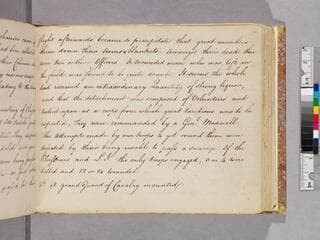 flight afterwards became so precipitate that great numbers
threw down their Arms & Blankets. Amongst their dead there
were two or three Officers. A wounded man who was left on
the field was found to be quite drunk. It seems the whole
had received an extraordinary quantity of strong liquor,
and that the detachment was composed of Volunteers and
looked upon as a corps from which great exertions was to be
expected. They were commanded by a Genl. Maxwell.
The attempts made by our troops to get round them were
defeated by their being unable to pass a swamp. Of the
Chasseurs and L. I. the only troops engaged, 3 or 4 were
killed and 12 or 14 wounded.
A grand Guard of Cavalry mounted.